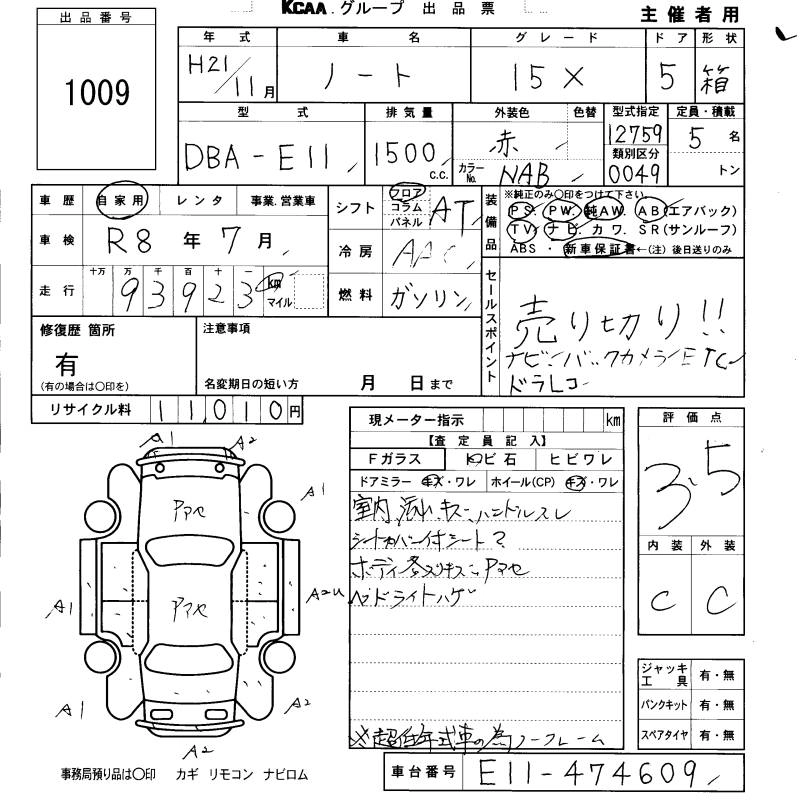 KCAA.グループ 出品票
主催者用
出品番号
1009
年式 車名 グレード ドア 形状
H21/11月 ノート 15X 5 箱
型式 排気量 外装色 色替 型式指定 定員・積載
DBA-E11 1500 c.c. 赤 12759 5名
類別区分
カラーNo. NAB 0049 トン
車歴 自家用 レンタ 事業.営業車
シフト フロア コラム パネル AT
装備品
※純正のみ○印をつけて下さい。
PS. PW. 純AW. AB(エアバック)
TV. ナビ. カワ. SR(サンルーフ)
ABS・新車保証書←(注)後日送りのみ
車検 R8年7月
冷房 AAC
走行 十万 万 千 百 十 一
93923 km マイル
燃料 ガソリン
セールスポイント
売り切り!!
ナビ/バックカメラ/ETC/
ドラレコ
修復歴 箇所
有
(有の場合は○印を)
注意事項
名変期日の短い方 月 日まで
リサイクル料 11,010円
現メーター指示 km
【査定員記入】
Fガラス トビ石 ヒビワレ
ドアミラー キズ・ワレ ホイール(CP) キズ・ワレ
室内 汚レ.キズ.ハンドルスレ
シートカバー付シート?
ボディ多スリキズ.アマセ
ヘッドライトハゲ
※超低年式車の為ノークレーム
評価点
3.5
内装 外装
C C
A1 A2
アマセ
A1
アマセ
A1 A2U
A1 A2
A2
ジャッキ工具 有・無
パンクキット 有・無
スペアタイヤ 有・無
事務局預り品は○印 カギ リモコン ナビロム
車台番号 E11-474609